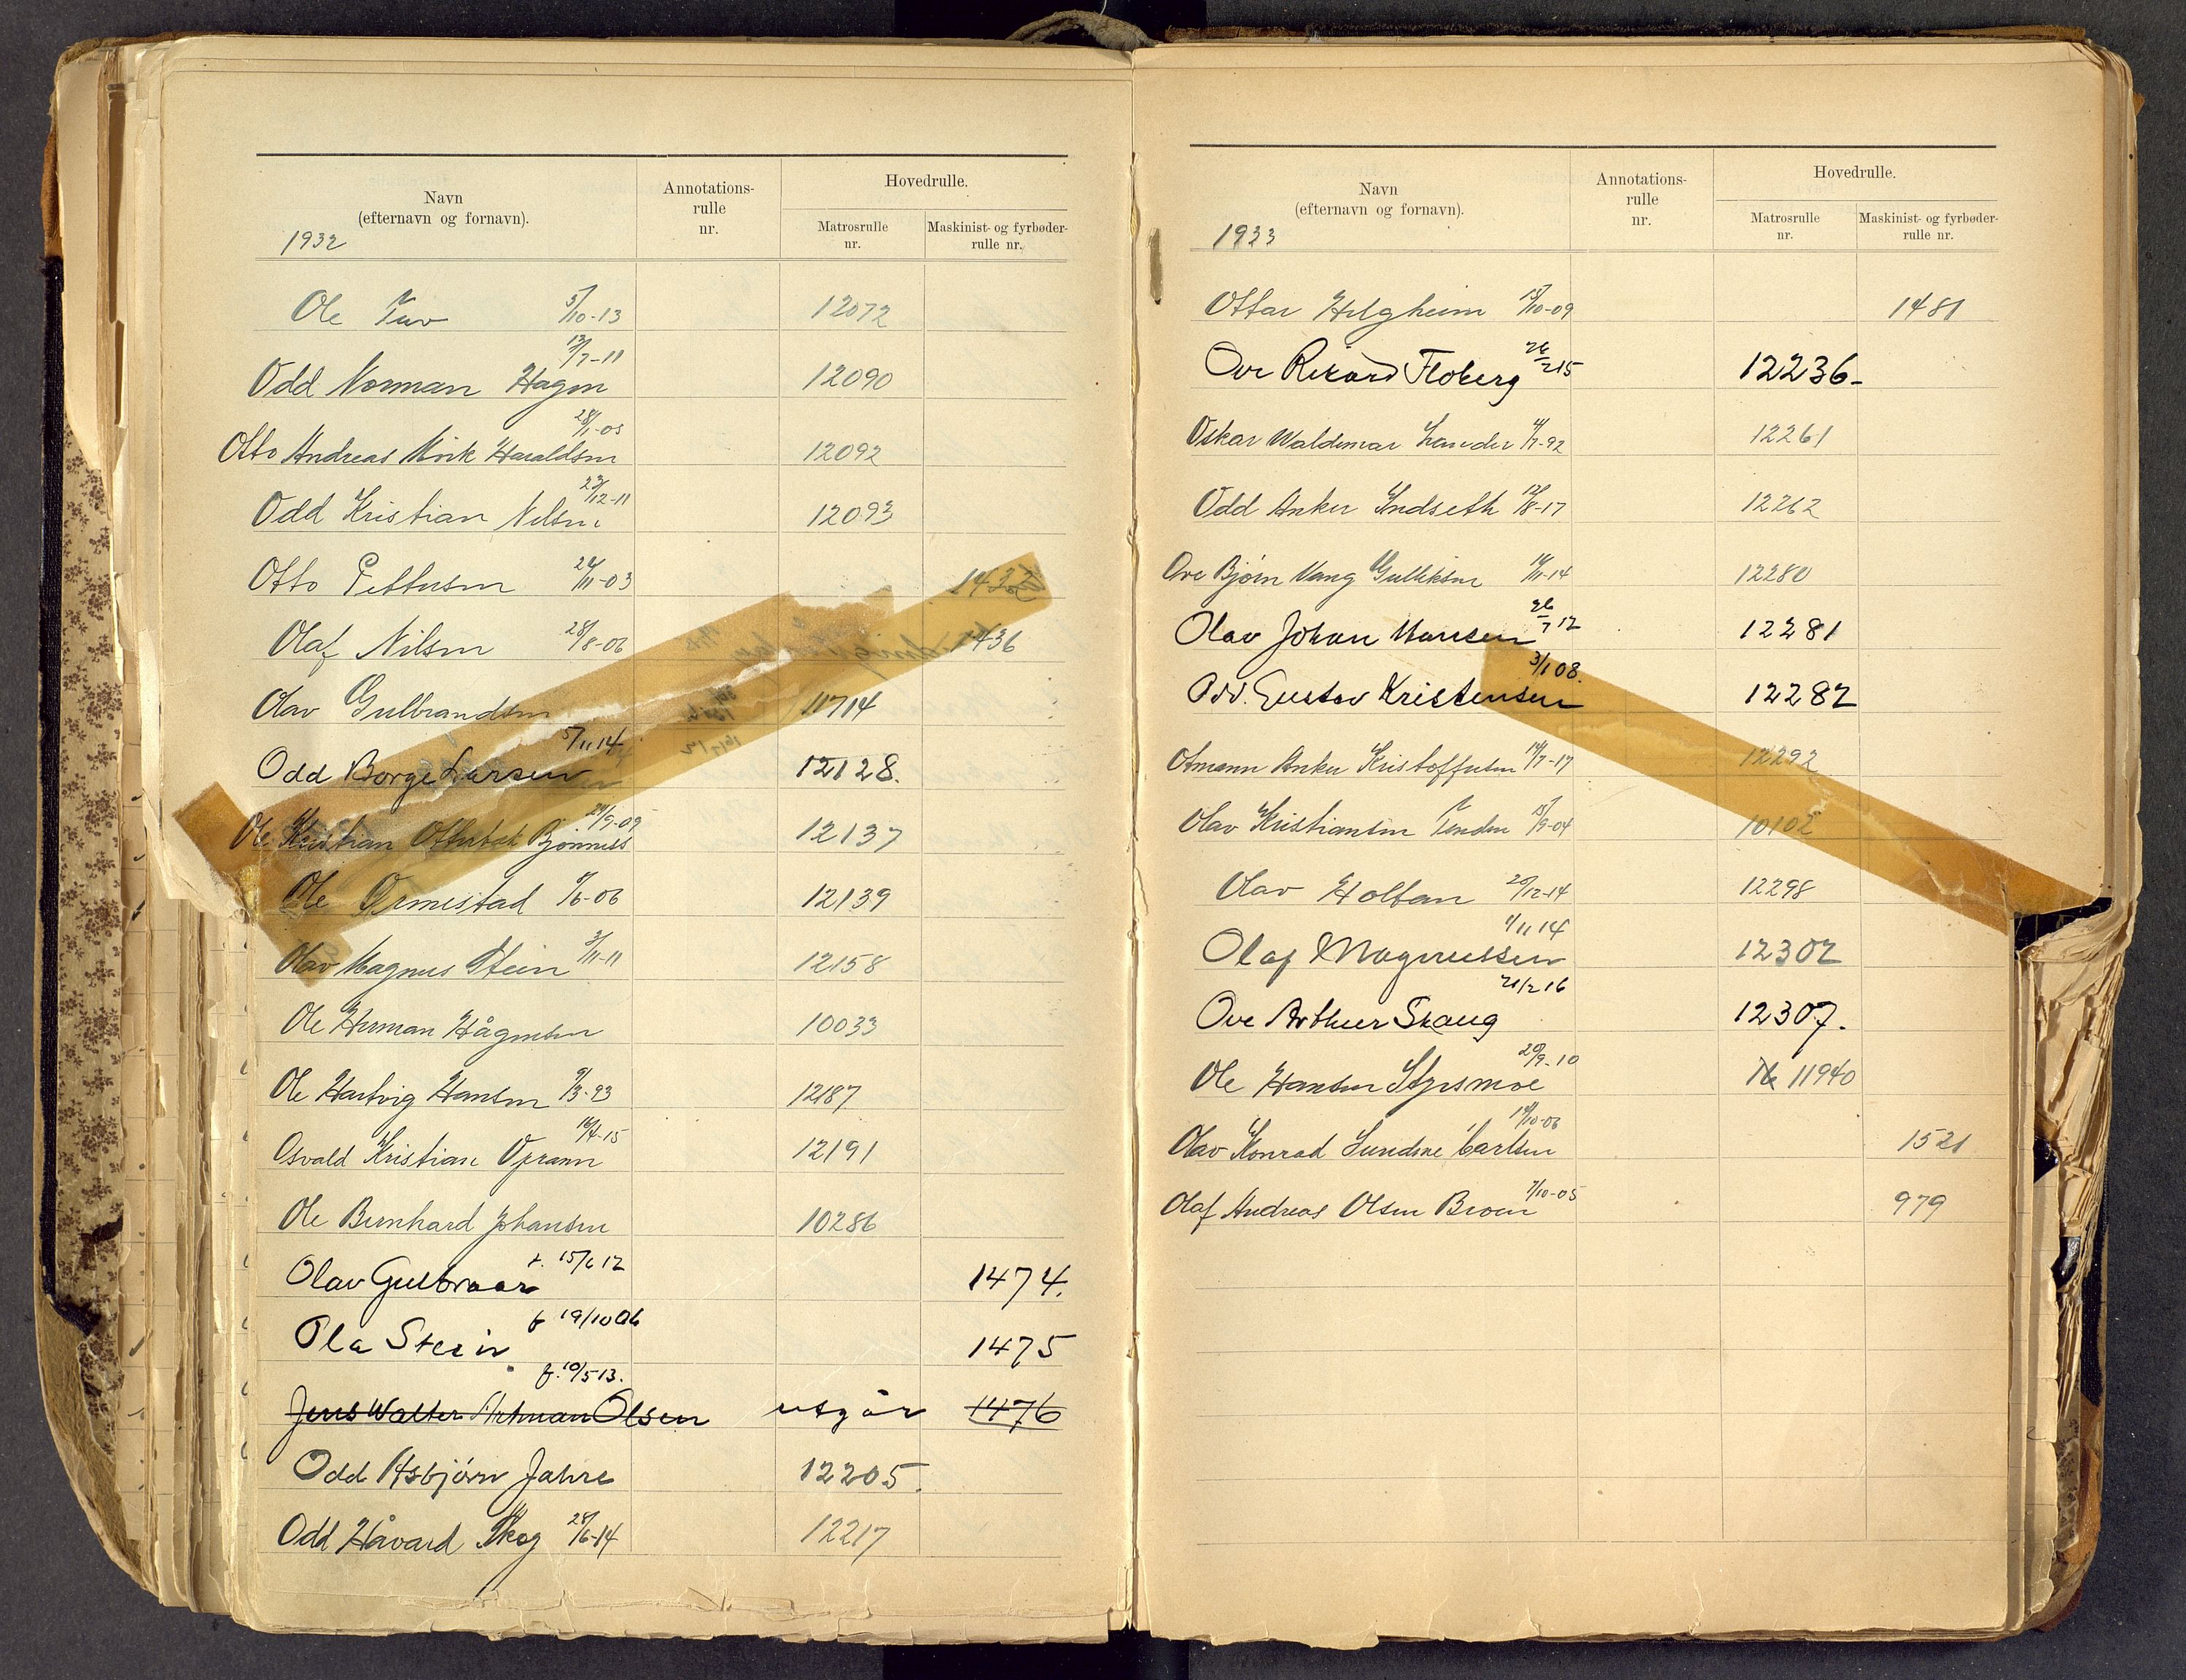 Navn
(efternavn og fornavn).
1932
Annotations-
rulle
nr.
Hovedrulle.
Matrosrulle
nr.
Maskinist- og fyrbøder-
rulle nr.
Ole Tuv 5/10-13 12072
Odd Norman Hagen 13/7-11 12090
Otto Andreas Mörk Haraldsen 28/1-05 12092
Odd Kristian Nilsen 23/12-11 12093
Otto Pettersen 24/11-03
Olaf Nilsen 28/8-06 1436
Olav Gulbrandsen 11714
Odd Borge Larsen 5/11 14 12128.
Ole Kristian Otterbek Bjönness 29/9-09 12137
Ole Ormestad /6-06 12139
Olav Magnus Stein 3/11-11 12158
Ole Herman Hågensen 10033
Ole Hartvig Hansen 9/3-93 12187
Osvald Kristian Oprann 16/4-15 12191
Ole Bernhard Johansen 10286
Olav Gulbraar f. 15/6 12 1474.
Ola Stein f 19/10 06 1475
Jens Walter Artman Olsen f. 10/5 13. utgår 1476
Odd Asbjörn Jahre 12205.
Odd Håvard Skog 28/6-14 12217
Navn
(efternavn og fornavn).
1933
Annotations-
rulle
nr.
Hovedrulle.
Matrosrulle
nr.
Maskinist- og fyrbøder-
rulle nr.
Ottar Helgheim 15/10-09 1481
Ove Rikard Floberg 26/2 15 12236-
Oskar Waldemar Lander 4/7-92 12261
Odd Anker Indseth 12/8-17 12262
Ove Bjørn Vang Gulliksen 14/11-14 12280
Olav Johan Hansen 26/7 12 12281
Odd. Gustav Kristensen 3/1 08. 12282
Otmann Anker Kristoffersen 14/7-17 12292
Olav Kristiansen Tenden 15/9-04 10102
Olav Holtan 20/12-14 12298
Olaf Magnussen 1/11 14 12302
Ove Arthur Skaug 21/2 16 12307.
Ole Hansen Styrsmoe 20/9-10 11940
Olav Konrad Sundine Carlsen 18/10-06 1521
Olaf Andreas Olsen Broen 7/10-05 979